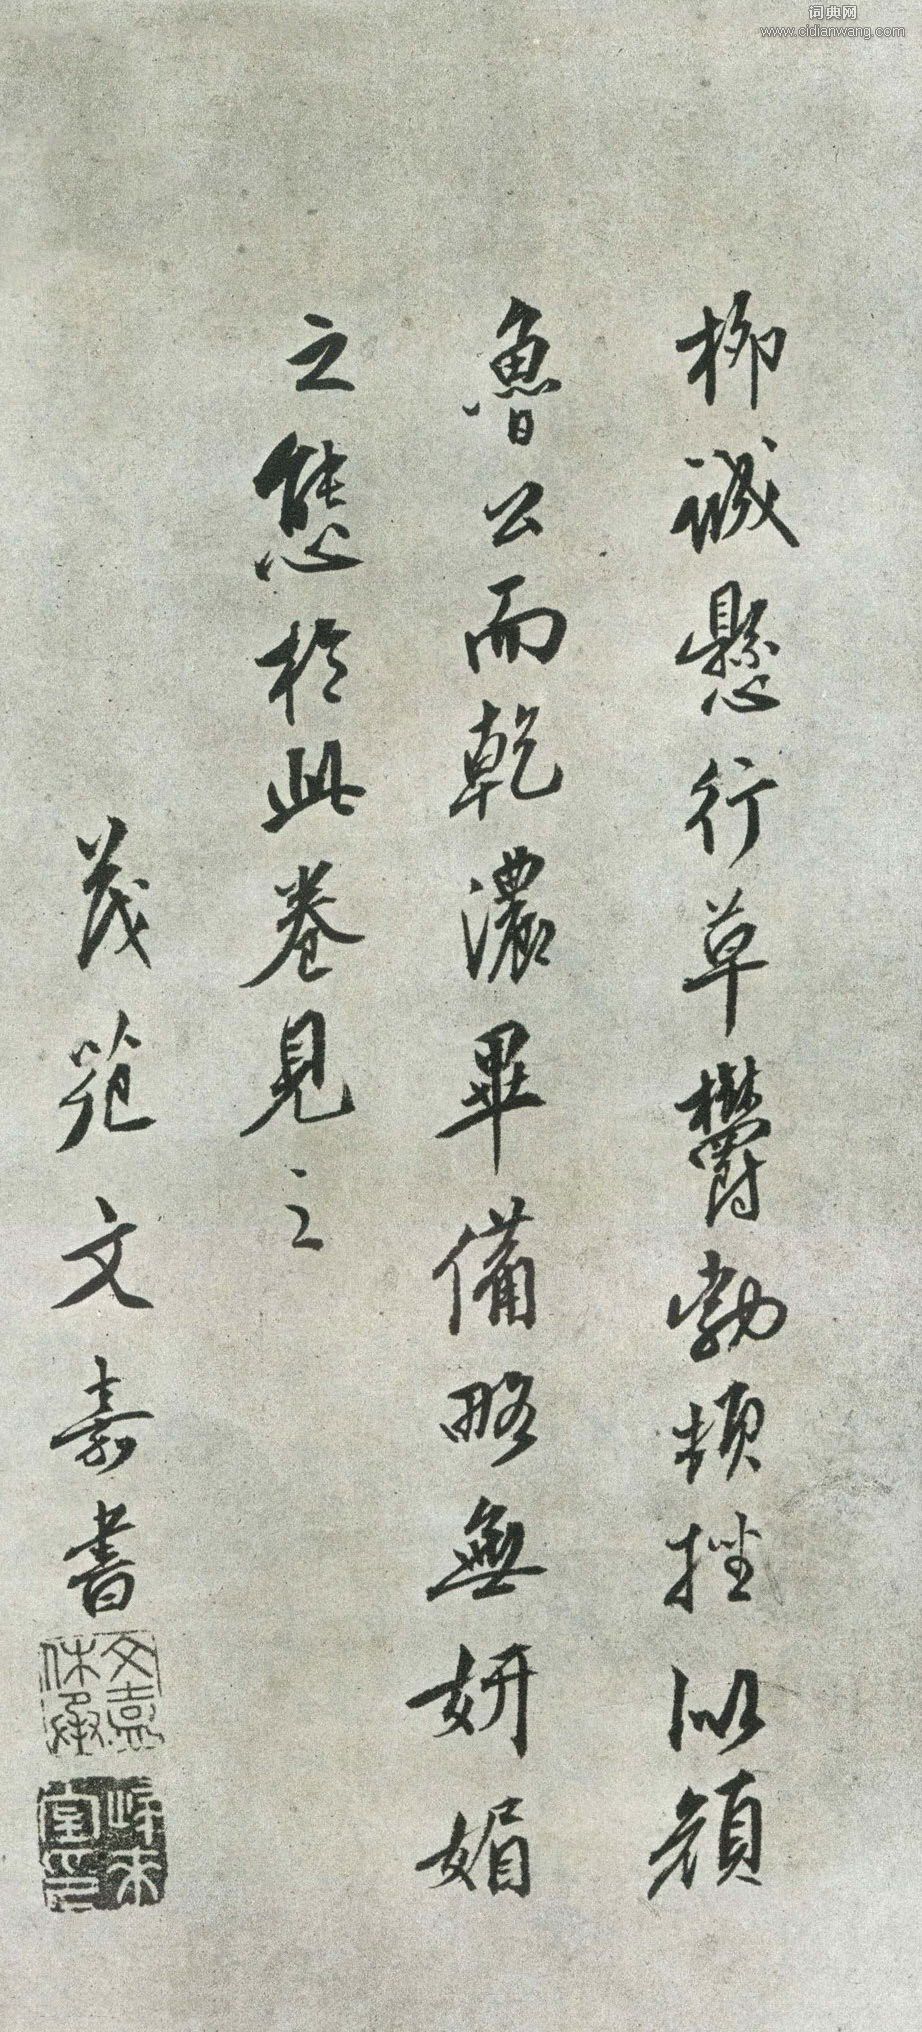 词典网
www.cidianwang.com
柳誠懸行草鬱勃頓挫似顔
魯公而乾濃畢備略無妍媚
之態於此卷見之
茂苑文嘉書
文嘉休承